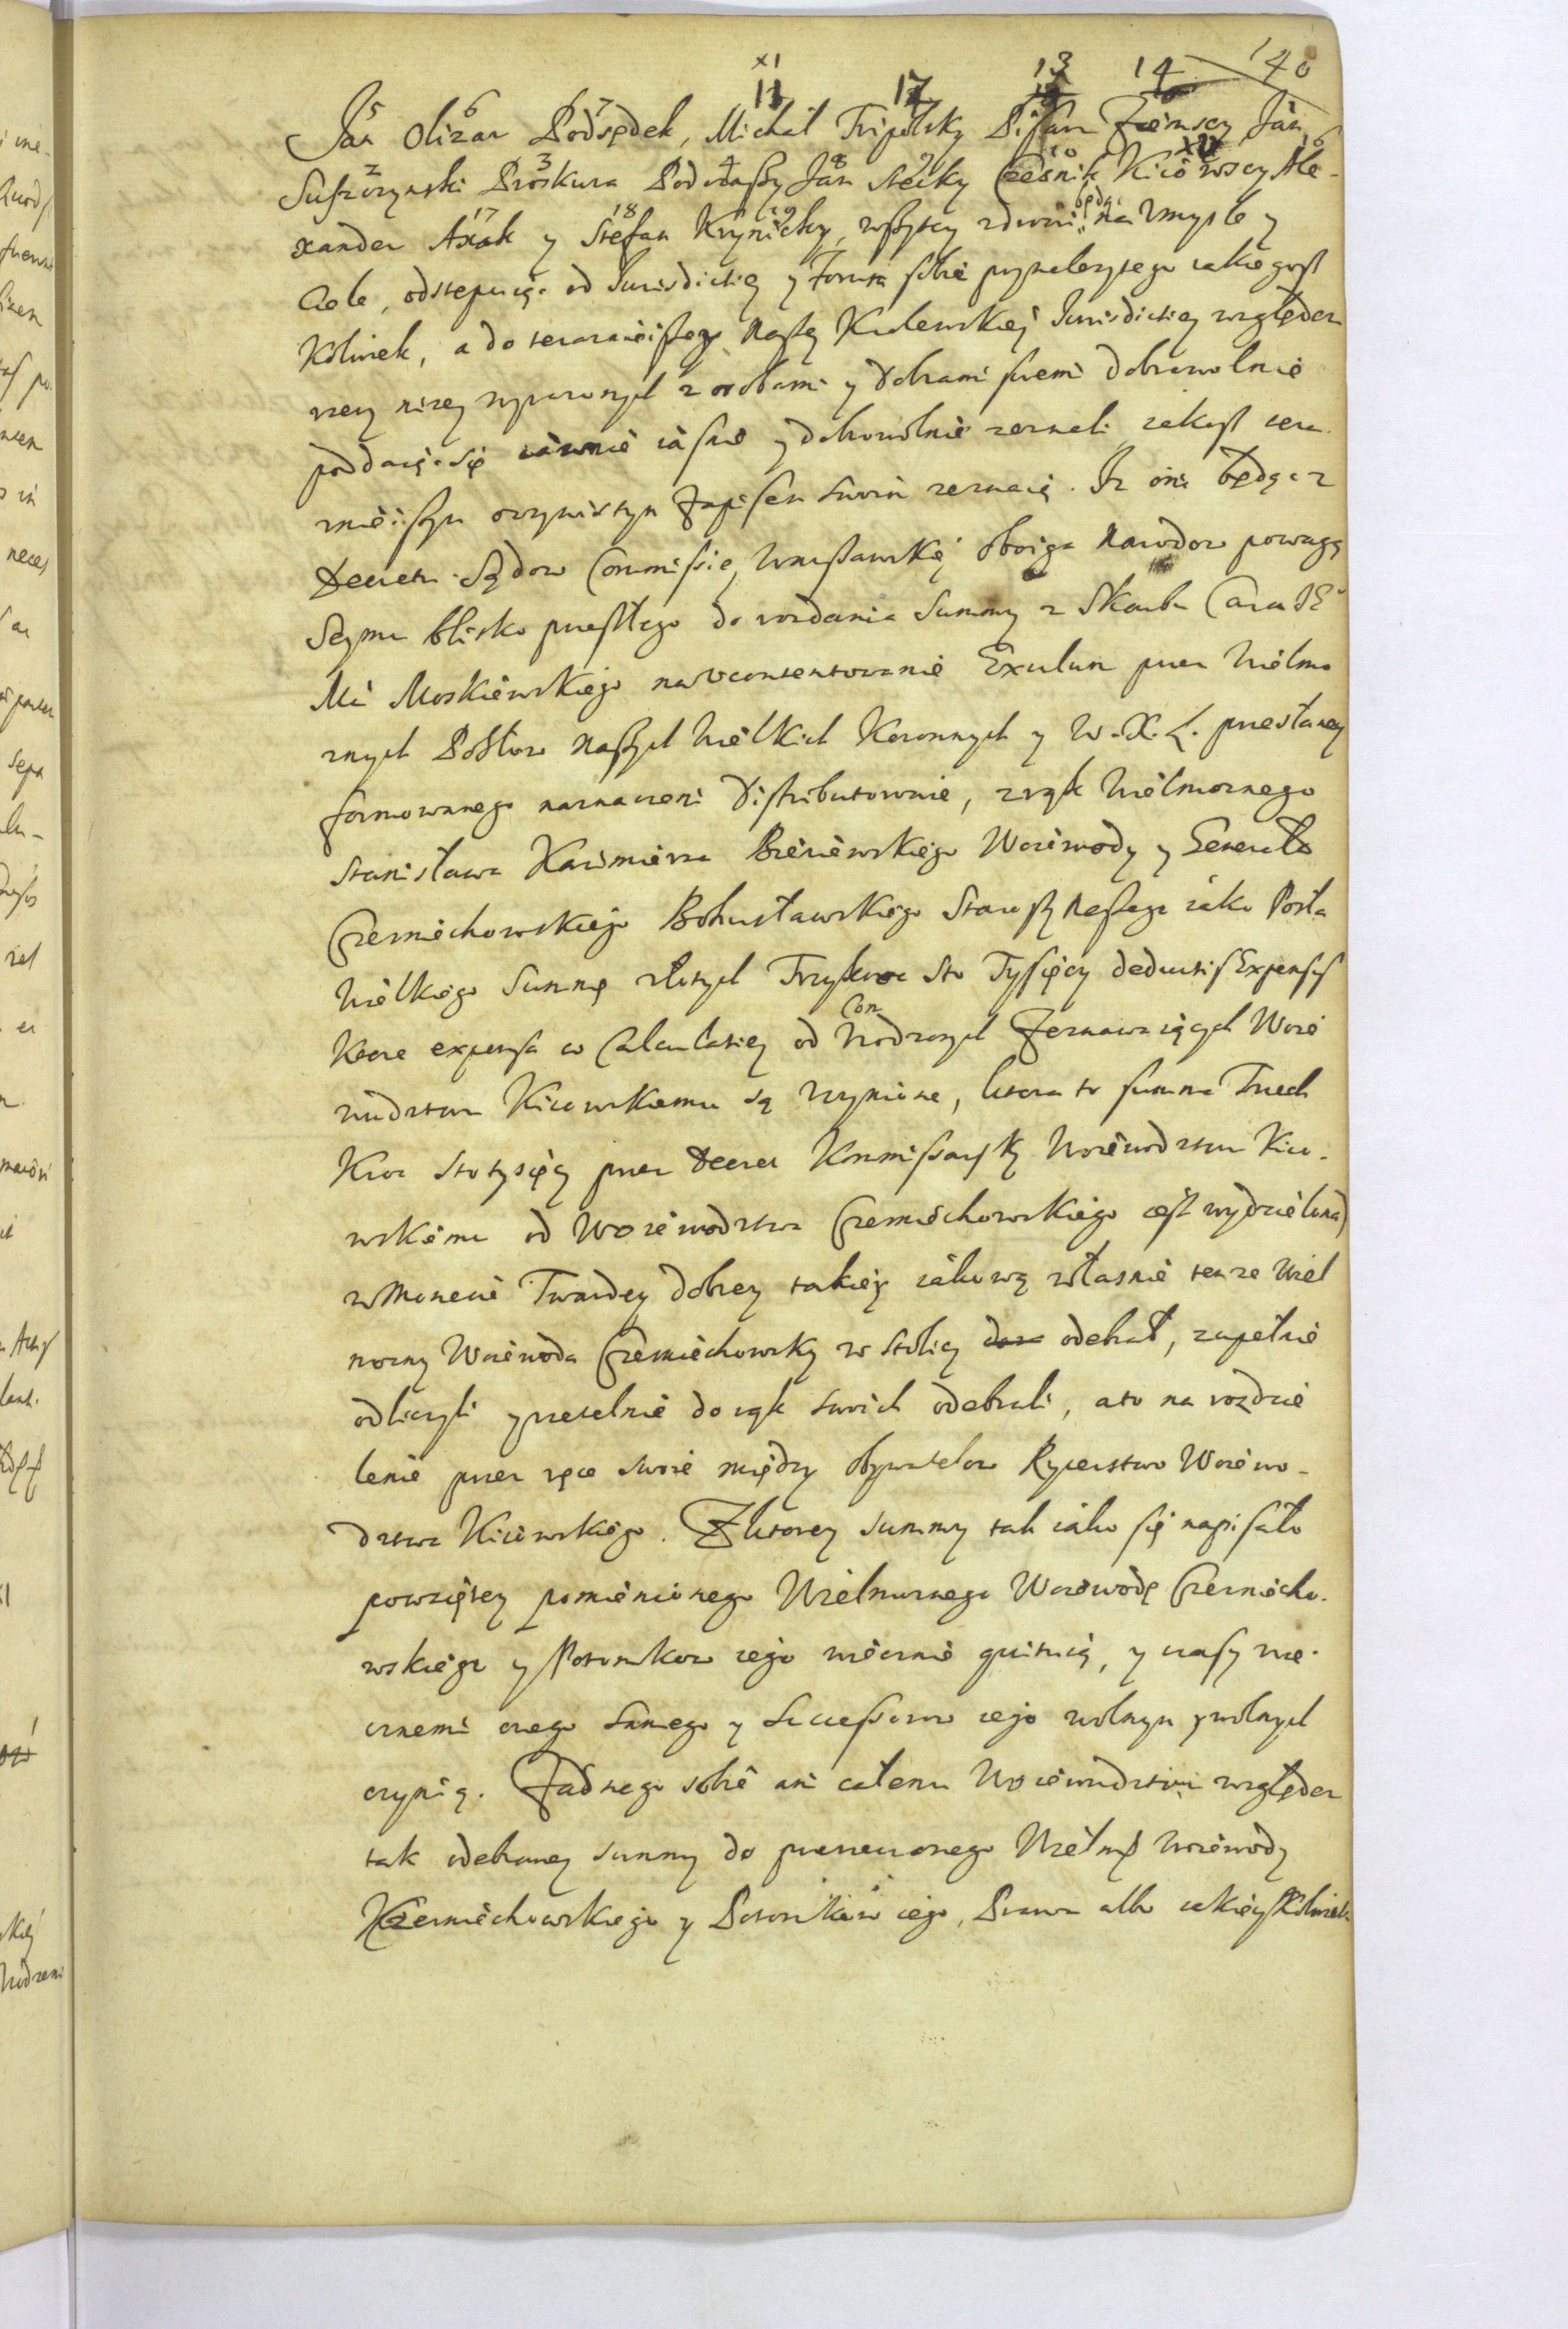 140
XI 11 12 13 14
5 6 7
Jan Olizar Podsędek, Michał Tripolsky Pisarz Ziemscy Jan
2 3 4 8 9 10 XV 16
Suszczynski Proskura Podczaszy Jan Stecky Cześnik Kiiowscy Ale-
17 18 19 będąc
xander Axak y Stefan Krynicky, wszyscy zdrowi na Umysle y
Ciele, odstępuiąc od Jurisdictiey y Forum sobie przynależytego iakiegosz
Kolwiek, a do teraznieiszego Naszey Krolewskiej Jurisdictiey względem
rzeczy niżey wyrazonych z osobami y Dobrami swemi dobrowolnie
poddaiąc się iawnie iasnie y dobrowolnie zeznali iakosz tera
znieiszym oczywistym Zapisem swoim zeznaią. Iz oni będąc z
Decretu Sądow Commissiey Warszawskiej oboiga Narodow powagą
Seymu blisko przeszłego do rozdania Summy z Skarbu Cara JE°
Mći Moskiewskiego na Ucontentowanie Exulum przez Wielmo
znych Posłow Naszych Wielkich Koronnych y W. X. L. przestaney
formowanego naznaczeni Distributorowie, z rąk Wielmoznego
Stanisława Kazimierza Bieniewskiego Woiewody y Generała
Czerniechowskiego Bohusławskiego Starosty Naszego iako Posła
Wielkiego Summę złotych Trzykroc Sto Tysięcy deductis Expensis
Con
Ktore expensa w Calculatiey od Wodzonych Zeznawaiących Woie
wodztwu Kiiowskiemu są Uczynione, ktora to summa Trzech
Kroc Stotysięcy przez Decret Kommissarsky Woiewodztwu Kiio-
wskiemu od Woiewodztwa Czerniechowskiego iest wydzielona)
w Monecie Twardey dobrey takiey iakową własnie tenze Wiel
mozny Woiewoda Czerniechowsky w Stolicy odebrał, zupełnie
odliczyli y rzetelnie do rąk swoich odebrali, a to na rozdzie
lenie przez ręce swoie między Obywatelow Rycerstwo Woiewo-
dztwa Kiiowskiego. Z ktorey summy tak iako się napisało
powziętey pomienionego Wielmoznego Woiewodę Czerniecho-
wskiego y Potomkow iego wiecznie quituią, y czasy wie-
cznemi onego samego y Successorow iego wolnym y wolnych
czynią. Zadnego sobie ani całemu Woiewodztwu względem
tak odebraney summy do przerzeczonego Wielmo Woiewody
Czerniechowskiego y Potomkow iego, Prawa albo iakieyszkolwiek